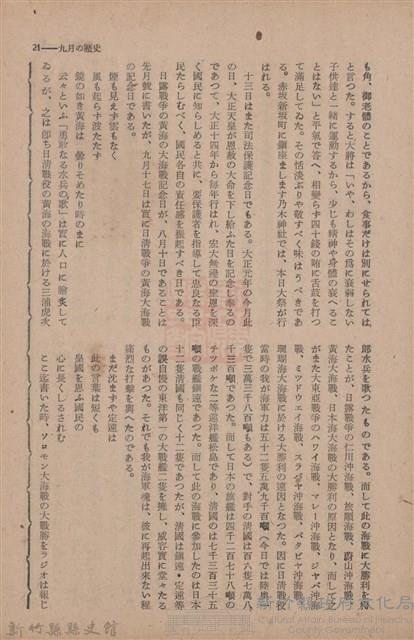 21——九月の歴史
も角、御老體のことであるから、食事だけは別にせられては
と言つた。すると大將は「いや、わしはその爲に衰弱しない
子供達と一緒に運動するから、少しも精神や身體の衰へるこ
とはない」と平氣で答へ、相變らず四十錢の賄に舌鼓を打つ
て滿足してゐた。その恬淡ぶりや敬すべく味はうべきであ
る。赤坂新坂町に鎭座まします乃木神社では、本日大祭が行
はれる。
十三日はまた司法保護記念日でもある。大正元年の今月此
の日、大正天皇が恩赦の大命を下し給ふた日を記念し奉るの
であつて、大正十四年から毎年行はれ、宏大無邊の聖恩を深
く國民に知らしめると共に、要保護者を指導して忠良なる臣
民たらしむべく、國民各自の責任感を振起すべき日である。
日露戰爭の黄海の大海戰記念日が、八月十日であることは
先月號に書いたが、九月十七日は實に日清戰爭の黄海大海戰
の記念日である。
煙も見えず雲もなく
風も起らず波たたず
鏡の如き黄海は　曇りそめたり時のまに
云々といふ「勇敢なる水兵の歌」は實に人口に膾炙して
ゐるが、之は卽ち日清戰役の黄海の海戰に於ける三浦虎次
郎水兵を歌つたものである。而して此の海戰に大勝利を得
たことが、日露戰爭の仁川沖海戰、旅順海戰、蔚山沖海戰、
黄海大海戰、日本海大海戰の大勝利の原因となり、而して之
がまた大東亞戰爭のハワイ海戰、マレー沖海戰、ジヤバ沖海
戰、ミツドウエイ海戰、スラジヤ沖海戰、バタビヤ沖海戰、
珊瑚海大海戰に於ける大勝利の遠因となつた。因に日清戰役
當時の我が海軍力は五十二隻五萬九千百噸（今日では陸奥一
隻で三萬二千八百噸もある）で、對手の清國は百六隻七萬八
千三百噸であつた。而して日本の旗艦は四千二百七十八噸の
チツポケな二等巡洋艦松島であり、清國のは七千三百三十五
噸の戰艦鎭遠であつた。而して此の海戰に參加したのは日本
十二隻清國も同じく十二隻であつたが、清國は鎭遠・定遠等
の誤自慢の東洋第一の大戰艦二隻を擁し、威容實に堂々たる
ものがあつた。それでも我が海軍魂は、彼に再起出來ない程
痛烈な打擊を與へたのである。
まだ沈まずや定遠は
此の言葉は短くも
皇國を思ふ國民の
心に長くしるされむ
ここ迄書いた時、ソロモン大海戰の大戰勝をラジオは報じ
新竹縣縣史館
新竹縣政府文化局
Cultural Affairs Bureau of Hsinchu
County Government